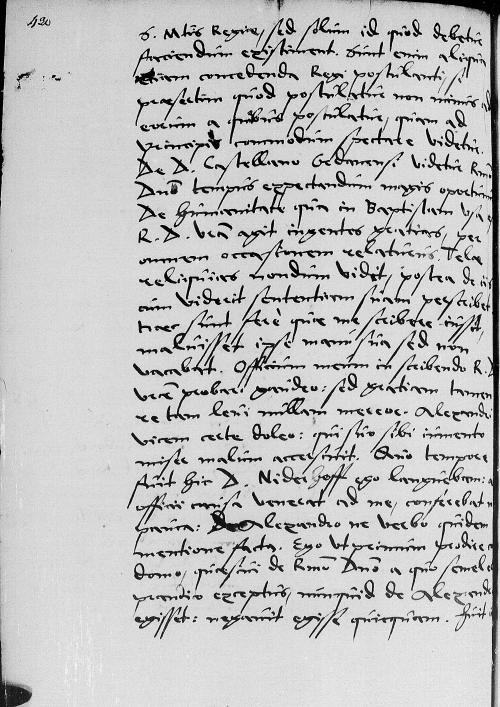 420
S. Mtis Regiae, sed solum id quod debetur
faciendum existiment. Sunt enim aliqua
etiam concedenda Regi postulanti, si
praesertim quod postulatur non minus ad
eorum a quibus postulatur, quam ad
principis commodum spectare videtur.
De D. Castellano Gedanensi videtur Rmo
Dno tempus expectandum magis oportunum
De humanitate qua in Baptistam usa e
R. D. Vra agit ingentes gratias, per
omnem occasionem relaturus. Telae
reliquias nondum vidit, postea de iis
cum viderit sententiam suam perscribet
Haec sunt fere quae me scribere iussit,
maluisset ipse manu sua sed non
vacabat. Officium meum in scribendo R. D.
Vrae probari gaudeo: sed gratiam tamen
re tam levi nullam mereor. Alexandri
vicem certe doleo: qui suo sibi iumento
miser malum accersivit. Quo tempore
fuit hic D. Niderhoff ego languebam: a
officii causa venerat ad me, conferebat m
pauca: De Alexandro ne verbo quidem
mentione facta. Ego ut primum prodire
domo, quaesivi de Rmo Dno a quo semel e
prandio exceptus, nunquid de Alexandro
egisset: negavit egisse quicquam. Fuit